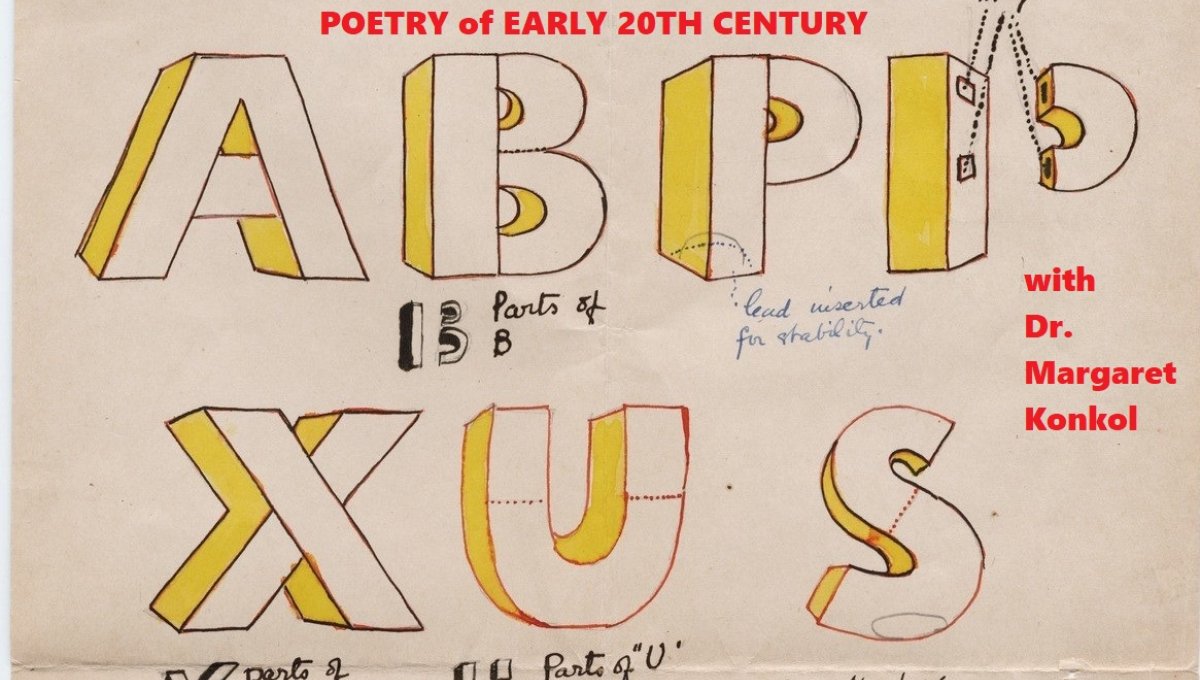 POETRY of EARLY 20TH CENTURY
A B P P
with
Dr.
Margaret
Konkol
B Parts of
B
lead inserted
for stability.
X U S
X parts of
U Parts of "U"